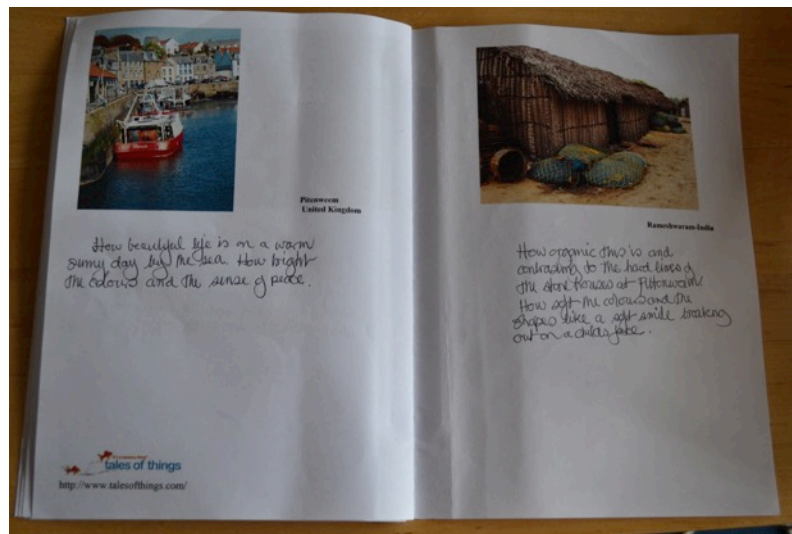 Pittenweem
United Kingdom
How beautiful life is on a warm
sunny day by the sea. How bright
the colours and the sense of peace.
tales of things
http://www.talesofthings.com/
Rameshwaram-India
How organic this is and
contrasting to the hard lines of
the stone houses at Pittenweem
How soft the colours and the
shapes like a soft smile breaking
out on a childs face.